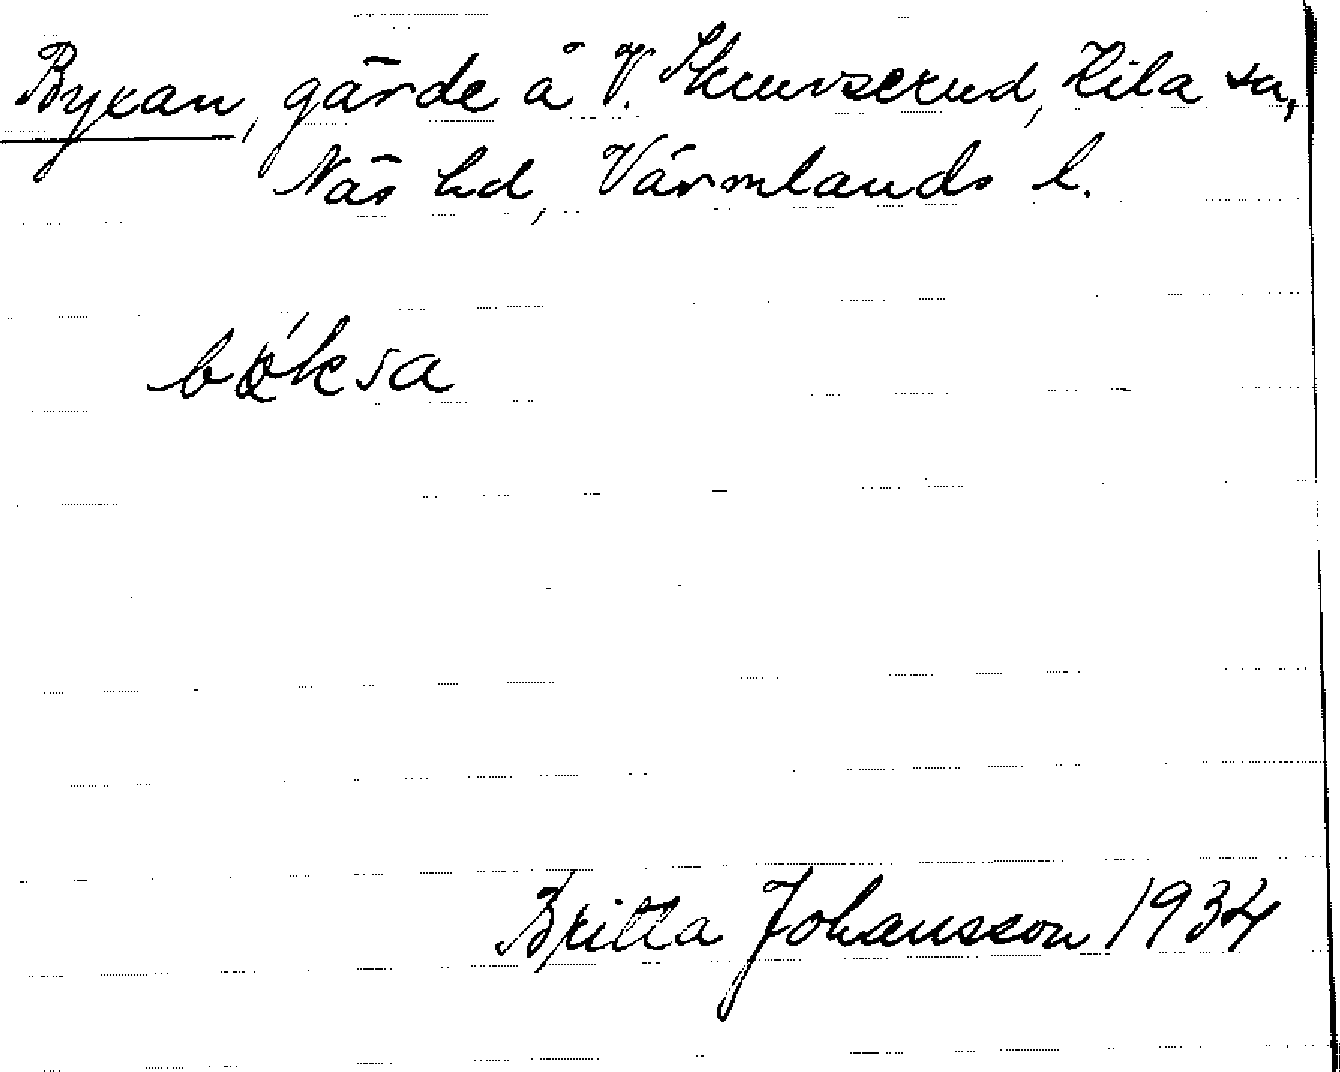 Byxan, gärde å V. Skurvserud, Kila sn,
Näs hd, Värmlands l.
bǿ̨ksa
Britta Johansson 1934